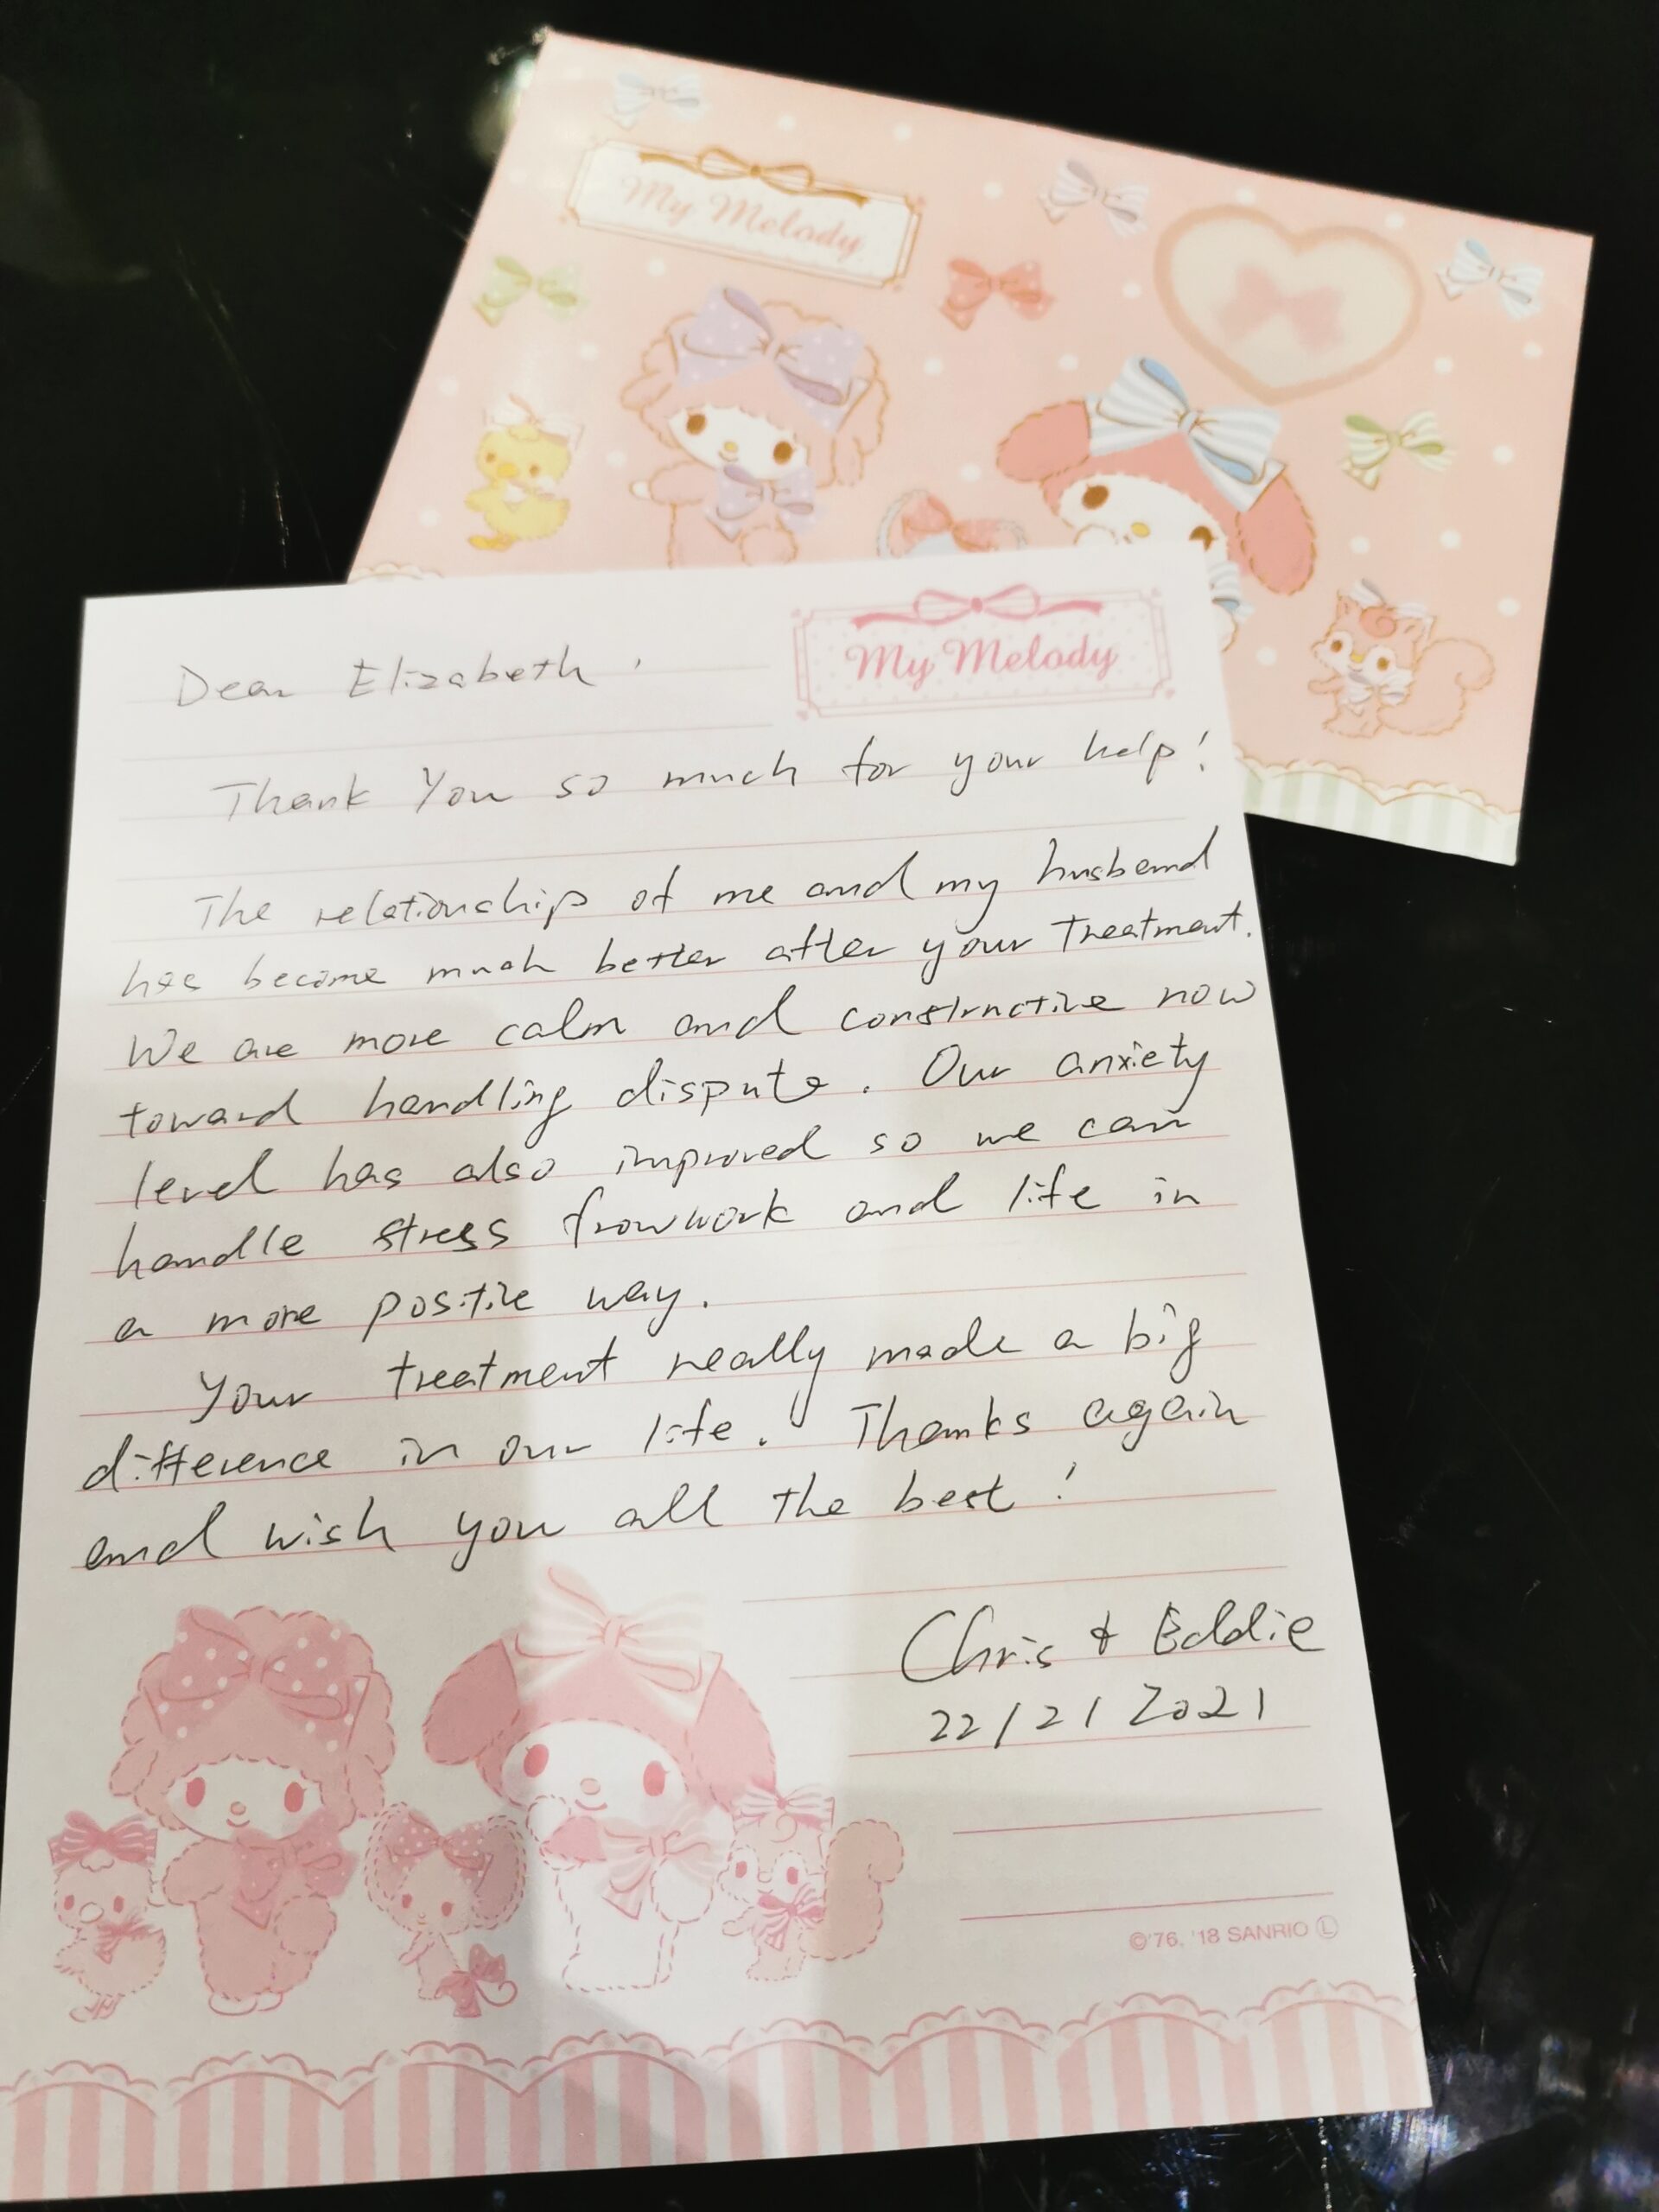 My Melody
My Melody
Dear Elizabeth,
Thank You so much for your help!
The relationship of me and my husband
has become much better after your treatment.
We are more calm and constructive now
toward handling dispute. Our anxiety
level has also improved so we can
handle stress from work and life in
a more positive way.
Your treatment really made a big
difference in our life. Thanks again
and wish you all the best!
Chris & Eddie
22/2/2021
©'76, '18 SANRIO Ⓛ